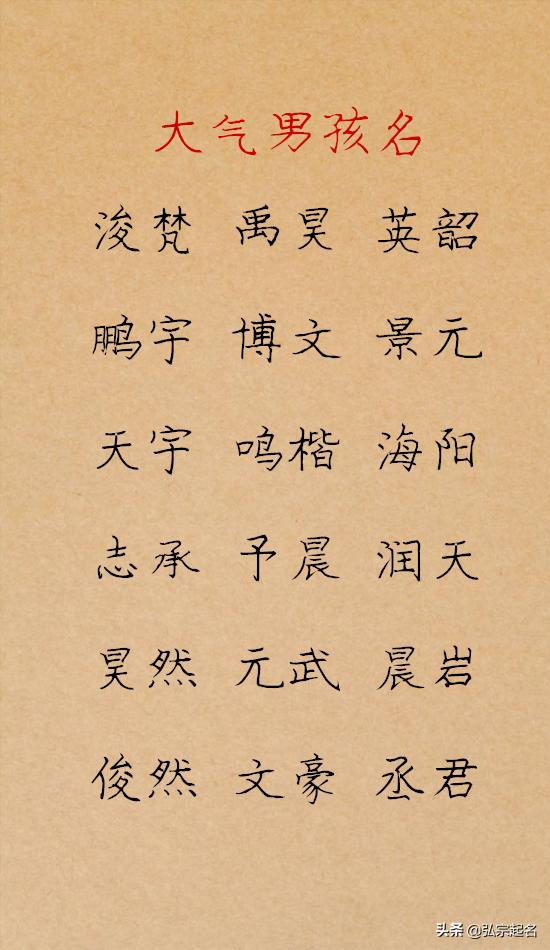 大气男孩名
浚梵 禹昊 英韶
鹏宇 博文 景元
天宇 鸣楷 海阳
志承 予晨 润天
昊然 元武 晨岩
俊然 文豪 丞君
头条 @弘宗起名